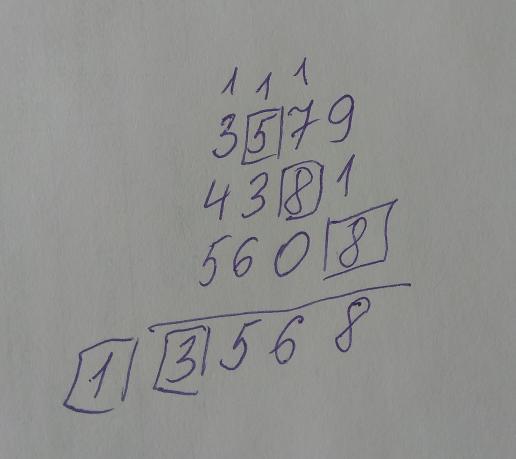 1 1 1
3579
4381
5608
13568